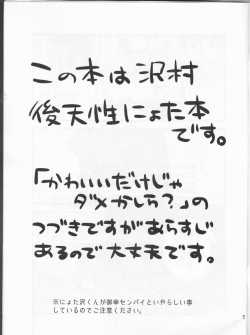 この本は沢村
後天性にょた本
です。
「かわいいだけじゃ
ダメかしら？」の
つづきですがあらすじ
あるので大丈夫です。
※にょた沢くんが御幸センパイといやらしい事
しているのでご注意ください。